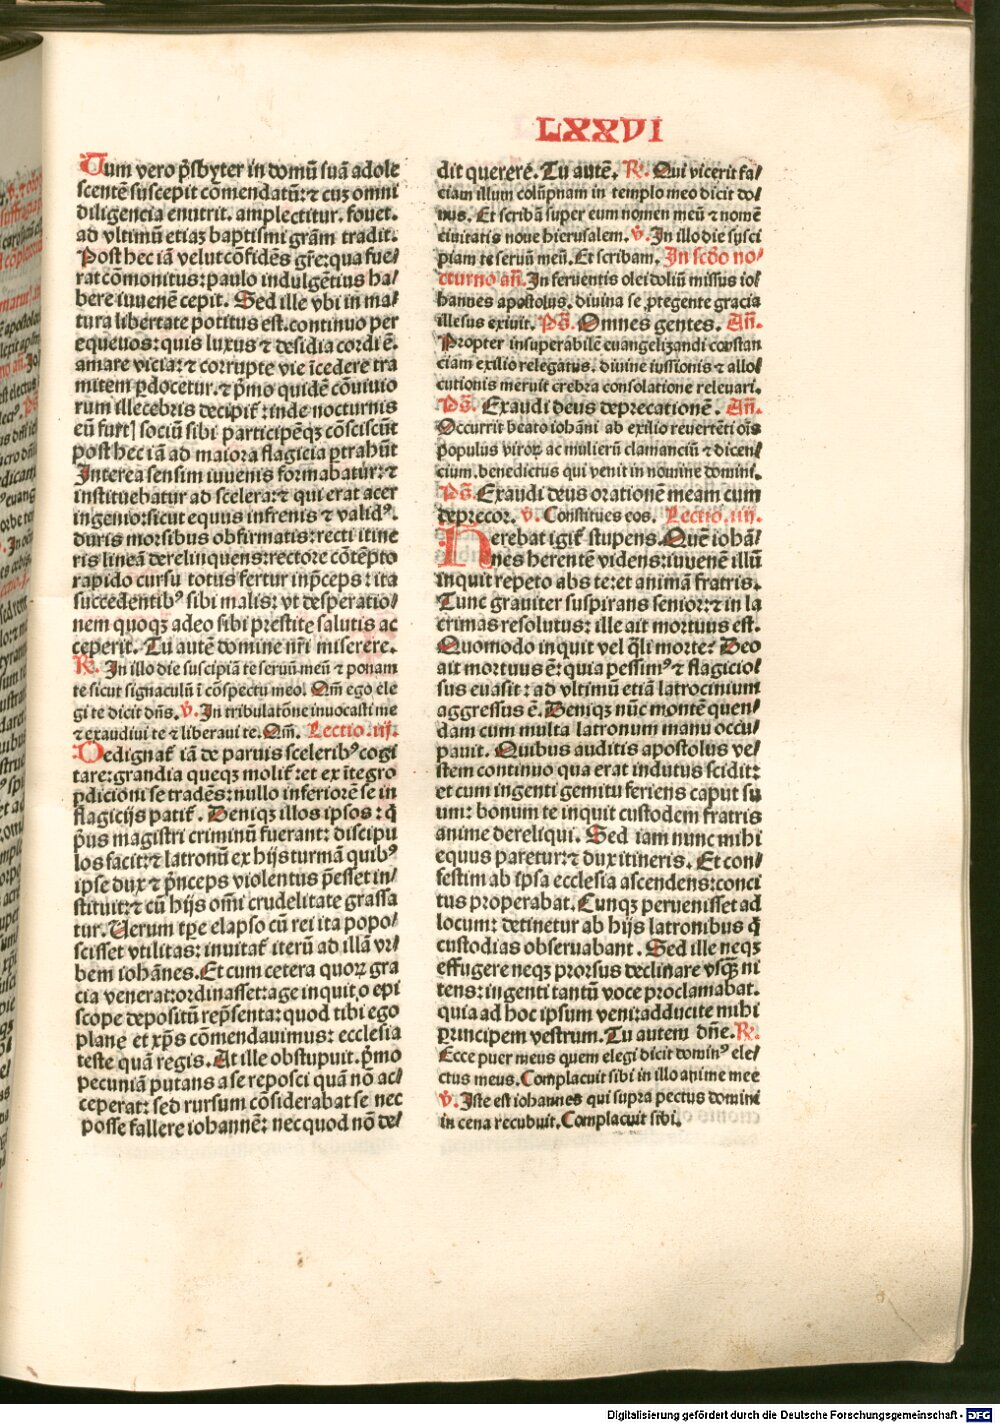 LXXVI
Tum vero p̃sbyter in domũ suã adole
scentẽ suscepit cõmendatũ: ⁊ cuʒ omni
diligencia enutrit. amplectitur. fouet.
ad vltimũ etiaʒ baptismi grãm tradit.
Post hec iã velut cõfidẽs gr̃e: qua fue/
rat cõmonitus: paulo indulgẽtius ha/
bere iuuenẽ cepit. Sed ille vbi in ma/
tura libertate potitus est. continuo per
equeuos: quis luxus ⁊ desidia cordi ẽ.
amare vicia: ⁊ corrupte vie ĩcedere tra
mitem ꝑdocetur. ⁊ p̃mo quidẽ cõuiuio
rum illecebris decipit̃: inde nocturnis
eũ furt̃ sociũ sibi participẽqʒ cõsciscũt
post hec iã ad maiora flagicia ꝑtrahũt
Interea sensim iuuenis formabatur: ⁊
instituebatur ad scelera: ⁊ qui erat acer
ingenio: sicut equus infrenis ⁊ validꝰ.
duris morsibus obfirmatis: recti itine
ris lineã derelinquens: rectore cõtẽpto
rapido cursu totus fertur inp̃ceps: ita
succedentibꝰ sibi malis: vt desperatio/
nem quoqʒ adeo sibi prestite salutis ac
ceperit. Tu autẽ domine nr̃i miserere.
R. In illo die suscipiã te seruũ meũ ⁊ ponam
te sicut signaculũ ĩ cõspectu meo. Qm̃ ego ele
gi te dicit dñs. v. In tribulatõne inuocasti me
⁊ exaudiui te ⁊ liberaui te. Qm̃. Lectio .iij.
Dedignat̃ iã de paruis sceleribꝰ cogi
tare: grandia queqʒ molit̃: et ex ĩtegro
ꝑdicioni se tradẽs: nullo inferiorẽ se in
flagicijs patit̃. Deniqʒ illos ipsos: q̃
p̃us magistri criminũ fuerant: discipu
los facit: ⁊ latronũ ex hijs turmã quibꝰ
ipse dux ⁊ p̃nceps violentus p̃esset in/
stituit: ⁊ cũ hijs om̃i crudelitate grassa
tur. Verum tp̃e elapso cũ rei ita popo/
scisset vtilitas: inuitat̃ iterũ ad illã vr/
bem iohãnes. Et cum cetera quoꝝ gra
cia venerat: ordinasset: age inquit, o epi
scope depositũ rep̃senta: quod tibi ego
plane et xp̃s cõmendauimus: ecclesia
teste quã regis. At ille obstupuit. p̃mo
pecuniã putans a se reposci quã nõ ac/
ceperat: sed rursum cõsiderabat se nec
posse fallere iohannẽ: nec quod nõ de/
dit querere. Tu autẽ. R. Qui vicerit fa/
ciam illum colũpnam in templo meo dicit do/
nus. Et scribã super eum nomen meũ ⁊ nomẽ
ciuitatis noue hierusalem. v. In illo die susci
piam te seruũ meũ. Et scribam. In scđo no/
cturno añ. In feruentis olei doliũ missus io/
hannes apostolus. diuina se ꝓtegente gracia
illesus exiuit. Pš. Omnes gentes. Añ.
Propter insuperabilẽ euangelizandi constan
ciam exilio relegatus. diuine iussionis ⁊ allo/
cutionis meruit crebra consolatione releuari.
Pš. Exaudi deus deprecationẽ. Añ.
Occurrit beato iohãni ab exilio reuertẽti oĩs
populus viroꝝ ac mulierũ clamanciũ ⁊ dicen/
cium. benedictus qui venit in nomine domini.
Pš. Exaudi deus orationẽ meam cum
deprecor. v. Constitues eos. Lectio .iiij.
Herebat igit̃ stupens. Quẽ iohã/
nes herentẽ videns: iuuenẽ illũ
inquit repeto abs te: et animã fratris.
Tunc grauiter suspirans senior: ⁊ in la
crimas resolutus: ille ait mortuus est.
Quomodo inquit vel q̃li morte? Deo
ait mortuus ẽ: quia pessimꝰ ⁊ flagicio/
sus euasit: ad vltimũ etiã latrocinium
aggressus ẽ. Deniqʒ nũc montẽ quen/
dam cum multa latronum manu occu/
pauit. Quibus auditis apostolus ve/
stem continuo qua erat indutus scidit:
et cum ingenti gemitu feriens caput su
um: bonum te inquit custodem fratris
anime dereliqui. Sed iam nunc mihi
equus paretur: ⁊ dux itineris. Et con/
festim ab ipsa ecclesia ascendens: conci
tus properabat. Cunqʒ peruenisset ad
locum: detinetur ab hijs latronibus q̃
custodias obseruabant. Sed ille neqʒ
effugere neqʒ prorsus declinare vsq̃ʒ ni
tens: ingenti tantũ voce proclamabat.
quia ad hoc ipsum veni: adducite mihi
principem vestrum. Tu autem dñe. R.
Ecce puer meus quem elegi dicit dominꝰ ele/
ctus meus. Complacuit sibi in illo anime mee
v. Iste est iohannes qui supra pectus domini
in cena recubuit. Complacuit sibi.
Digitalisierung gefördert durch die Deutsche Forschungsgemeinschaft - DFG